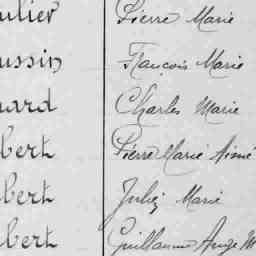 ulier Pierre Marie
ussin François Marie
nard Charles Marie
bert Pierre Marie Aimé
bert Marie
bert Guillaume Ange M